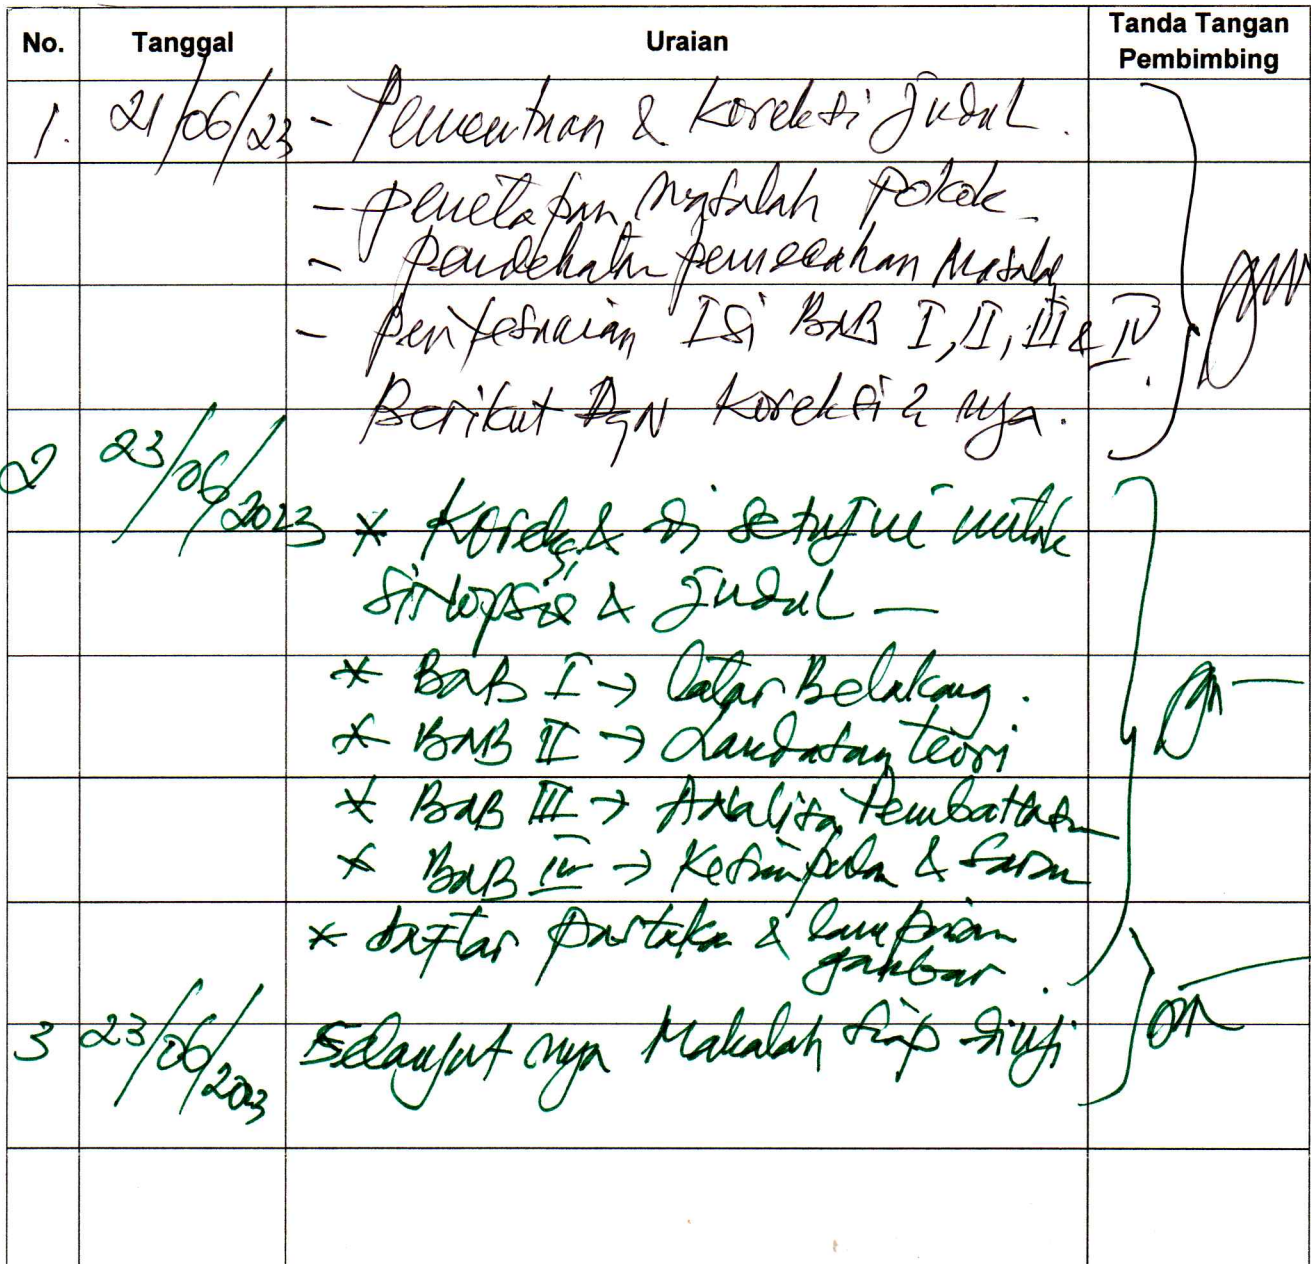 No. Tanggal Uraian Tanda Tangan Pembimbing
1. 21/06/23 - Penentuan & Koreksi Judul.
- penetapan Masalah Pokok
- pendekatan pemecahan Masalah
- penyesuaian Isi BAB I, II, III & IV.
Berikut DGN Koreksi2 nya.
2 23/06/2023 * Koreksi & di setujui untuk
Sinopsis & Judul —
* BAB I → Latar Belakang.
* BAB II → Landasan teori
* BAB III → Analisa Pembahasan
* BAB IV → Kesimpulan & Saran
* daftar pustaka & lampiran
gambar.
3 23/06/2023 Selanjut nya Makalah siap diuji